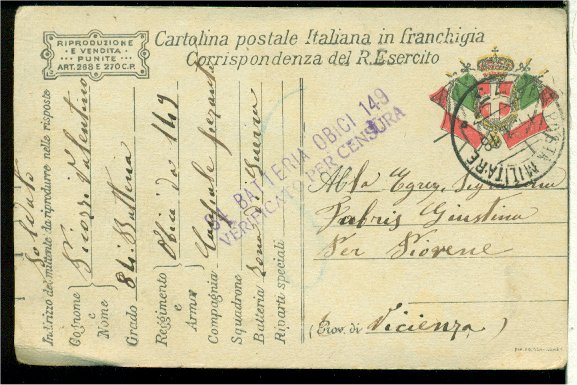 RIPRODUZIONE
E VENDITA
PUNITE
ART. 268 E 270 C.P.
Cartolina postale Italiana in franchigia
Corrispondenza del R. Esercito
Indirizzo del mittente da riprodurre nelle risposte
Soldato
Cognome e Nome
Valentino
Grado
84 Batteria
Reggimento e Arma
Obici da 149
Compagnia
Squadrone
Batteria
Zona di Guerra
Riparti speciali
84 BATTERIA OBICI 149
VERIFICATO PER CENSURA
POSTA MILITARE
Alla Egreg. Signorina
Fabris Giustina
Per Piovene
(Prov. di Vicienza)